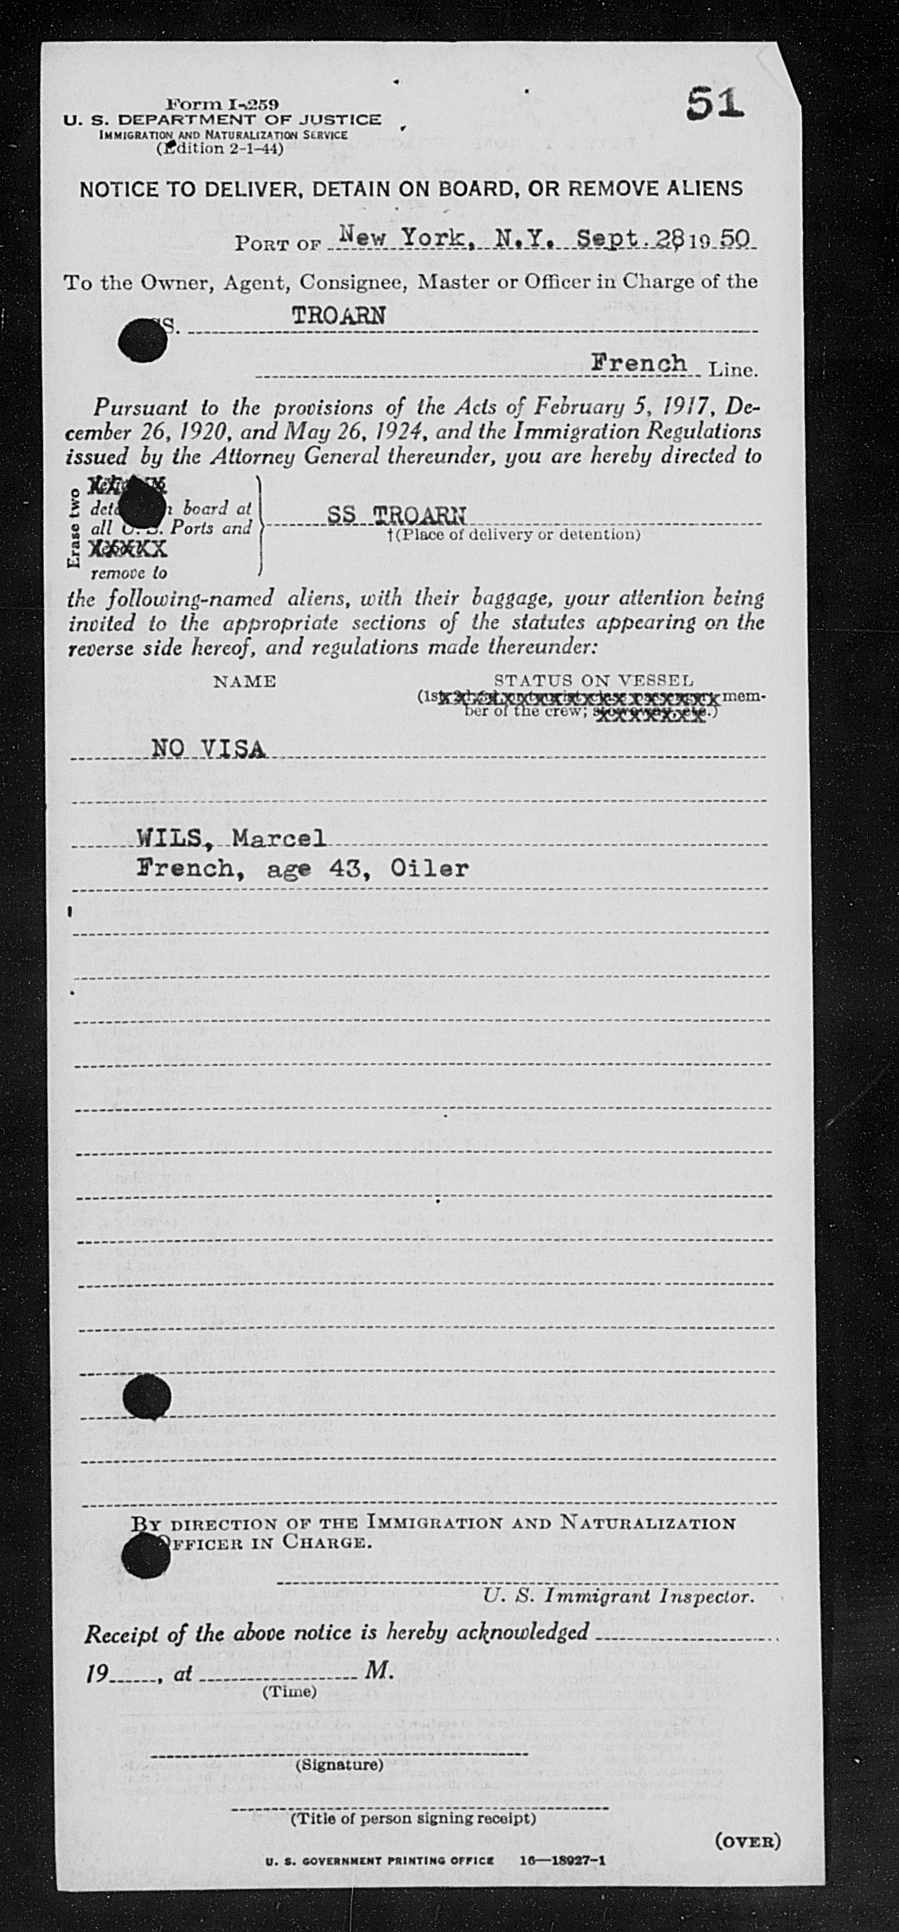 51
Form I-259
U. S. DEPARTMENT OF JUSTICE
IMMIGRATION AND NATURALIZATION SERVICE
(Edition 2-1-44)
NOTICE TO DELIVER, DETAIN ON BOARD, OR REMOVE ALIENS
PORT OF New York, N.Y. Sept. 28 19 50
To the Owner, Agent, Consignee, Master or Officer in Charge of the
SS. TROARN
French Line.
Pursuant to the provisions of the Acts of February 5, 1917, De-
cember 26, 1920, and May 26, 1924, and the Immigration Regulations
issued by the Attorney General thereunder, you are hereby directed to
Erase two
board at
all U. S. Ports and
remove to
SS TROARN
†(Place of delivery or detention)
the following-named aliens, with their baggage, your attention being
invited to the appropriate sections of the statutes appearing on the
reverse side hereof, and regulations made thereunder:
NAME STATUS ON VESSEL
(1st mem-
ber of the crew; .)
NO VISA
WILS, Marcel
French, age 43, Oiler
BY DIRECTION OF THE IMMIGRATION AND NATURALIZATION
OFFICER IN CHARGE.
U. S. Immigrant Inspector.
Receipt of the above notice is hereby acknowledged
19 , at M.
(Time)
(Signature)
(Title of person signing receipt)
(OVER)
U. S. GOVERNMENT PRINTING OFFICE 16—18927-1